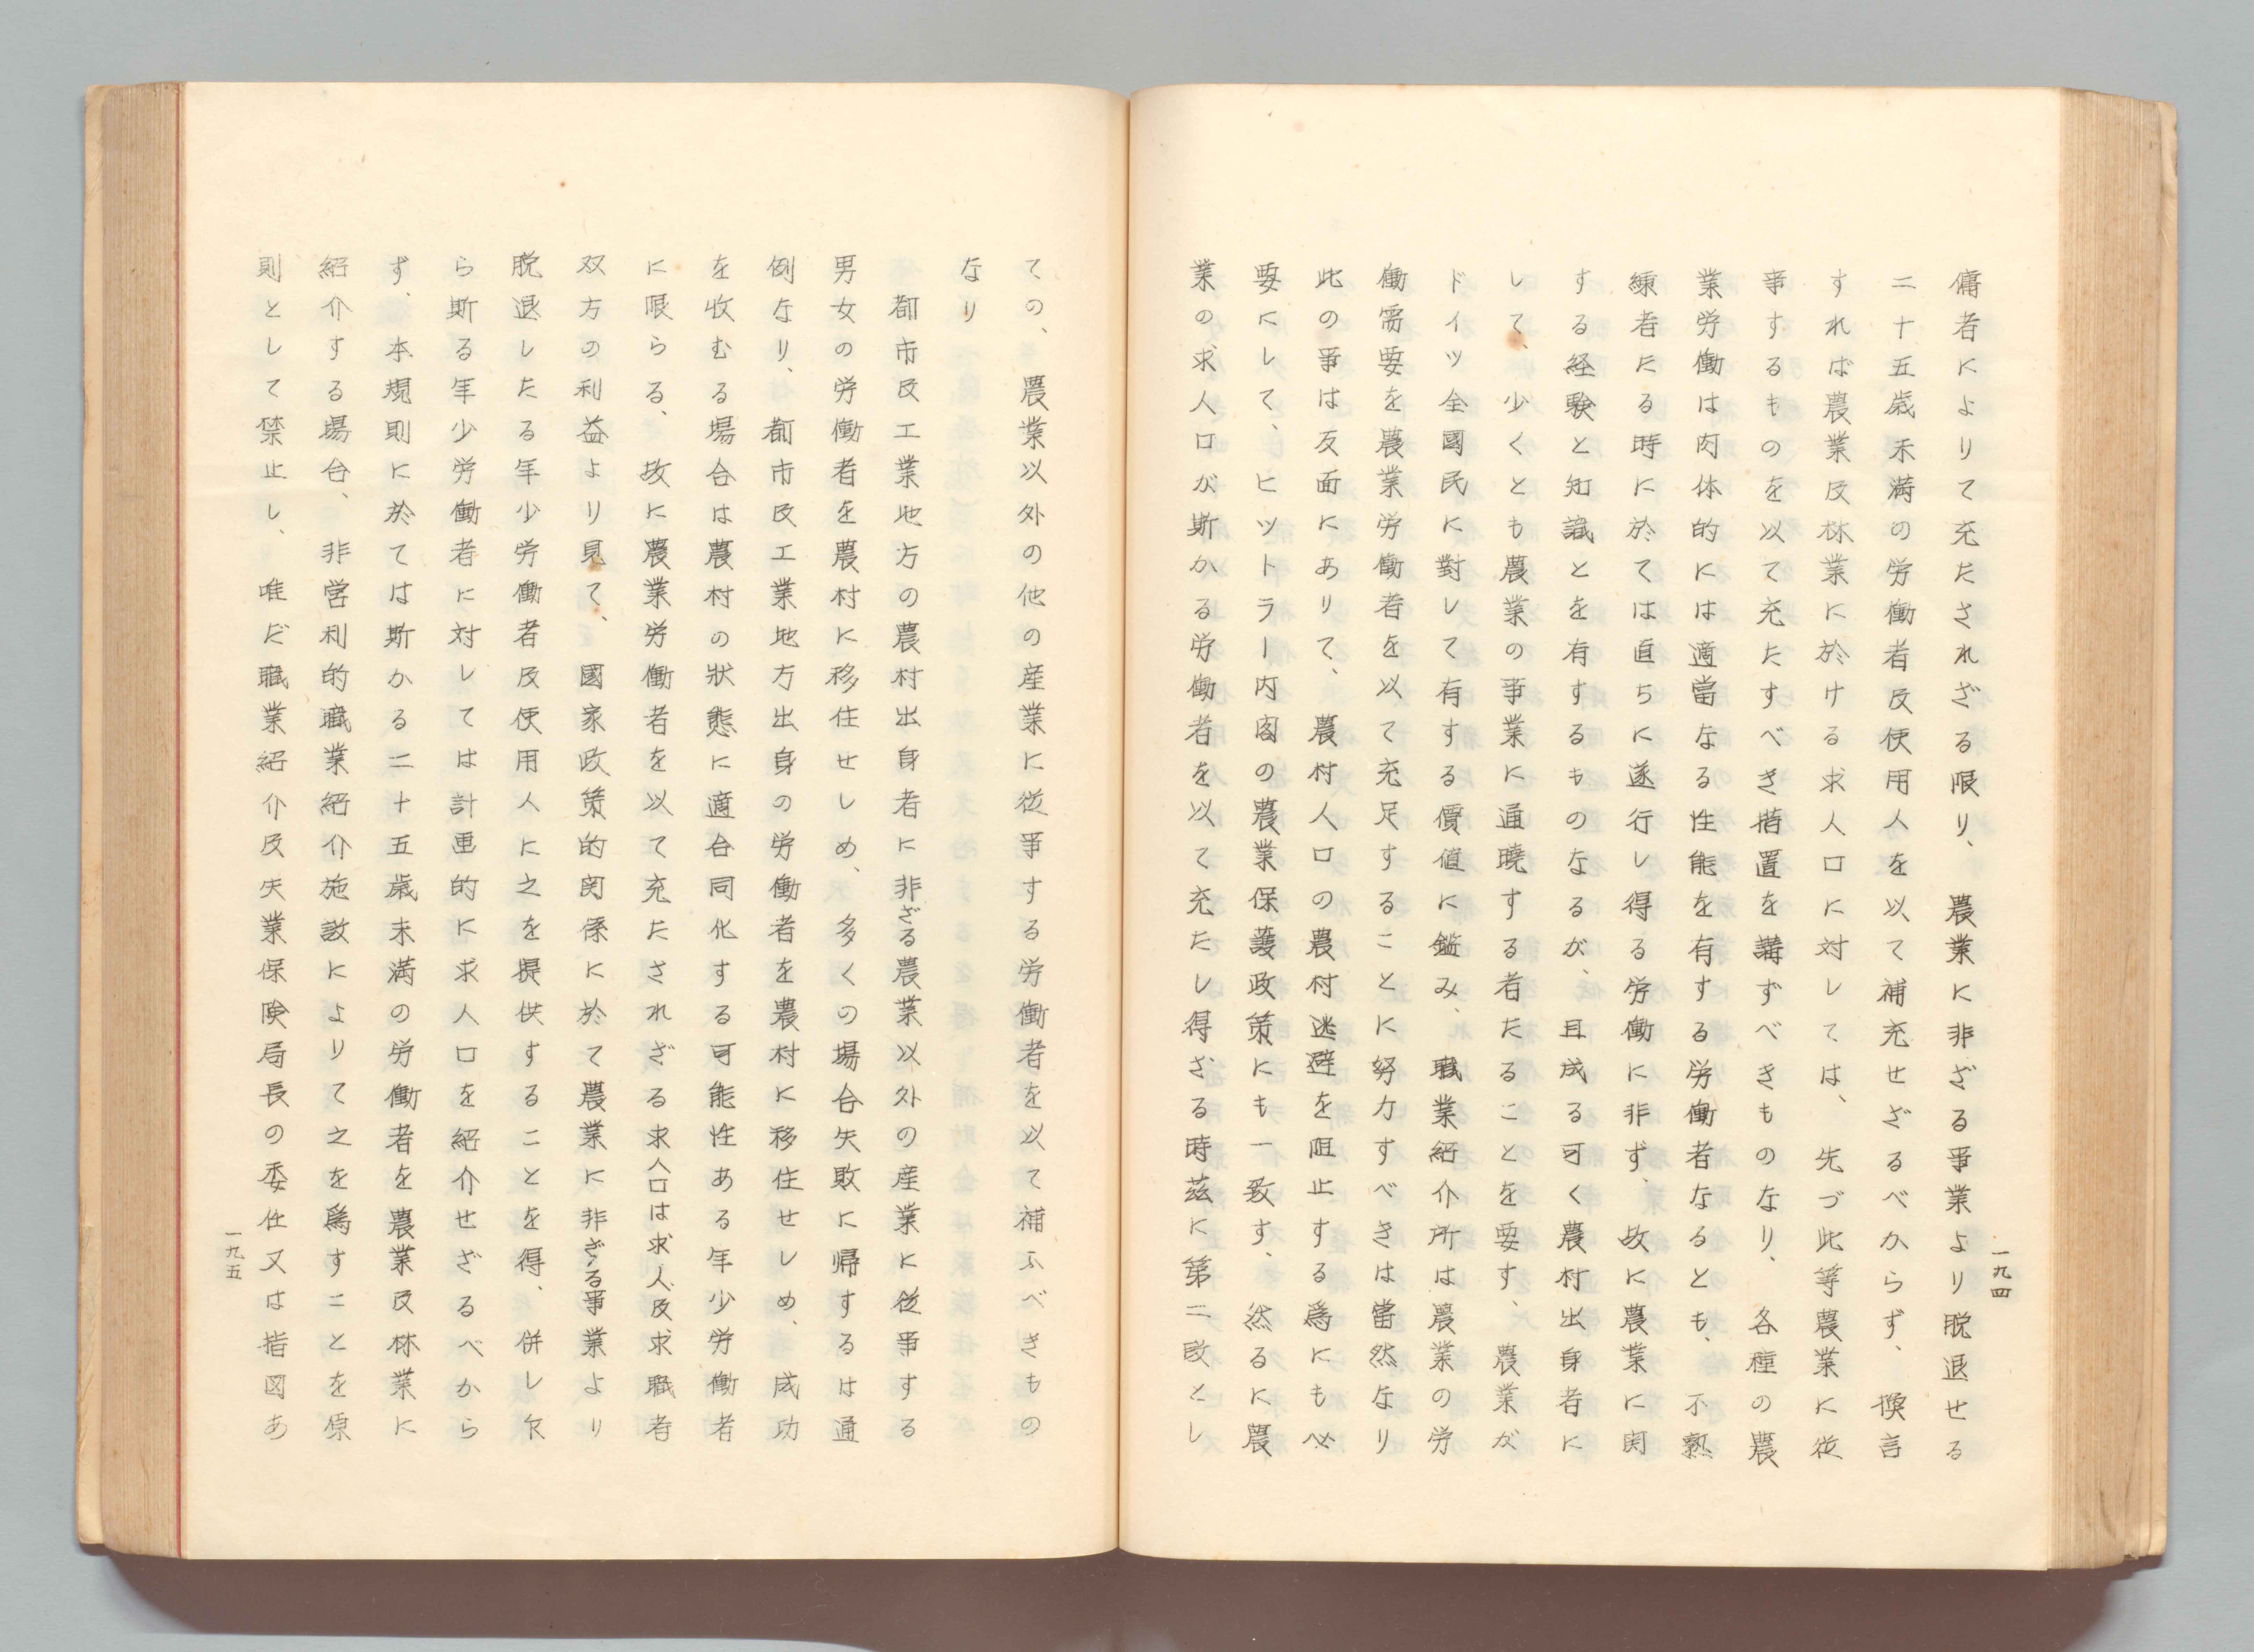 一九四
傭者によりて充たされざる限り、農業に非ざる事業より脱退せる
二十五歳未満の労働者及使用人を以て補充せざるべからず、換言
すれば農業及林業に於ける求人口に対しては、先づ此等農業に従
事するものを以て充たすべき措置を講ずべきものなり、各種の農
業労働は肉体的には適當なる性能を有する労働者なるとも、不熟
練者たる時に於ては直ちに遂行し得る労働に非ず、故に農業に関
する経験と知識とを有するものなるが、且成る可く農村出身者に
して、少くとも農業の事業に通曉する者たることを要す、農業が
ドイツ全國民に對して有する價値に鑑み、職業紹介所は農業の労
働需要を農業労働者を以て充足することに努力すべきは當然なり
此の事は反面にありて、農村人口の農村逃避を阻止する爲にも必
要にして、ヒットラー内閣の農業保護政策にも一致す、然るに農
業の求人口が斯かる労働者を以て充たし得ざる時茲に第二段とし
ての、農業以外の他の産業に従事する労働者を以て補ふべきもの
なり
都市及工業地方の農村出身者に非ざる農業以外の産業に従事する
男女の労働者を農村に移住せしめ、多くの場合失敗に帰するは通
例なり、都市及工業地方出身の労働者を農村に移住せしめ、成功
を收むる場合は農村の狀態に適合同化する可能性ある年少労働者
に限らる、故に農業労働者を以て充たされざる求人口は求人及求職者
双方の利益より見て、國家政策的関係に於て農業に非ざる事業より
脱退したる年少労働者及使用人に之を提供することを得、併し乍
ら斯る年少労働者に対しては計画的に求人口を紹介せざるべから
ず、本規則に於ては斯かる二十五歳未満の労働者を農業及林業に
紹介する場合、非営利的職業紹介施設によりて之を爲すことを原
則として禁止し、唯だ職業紹介及失業保険局長の委任又は指図あ
一九五